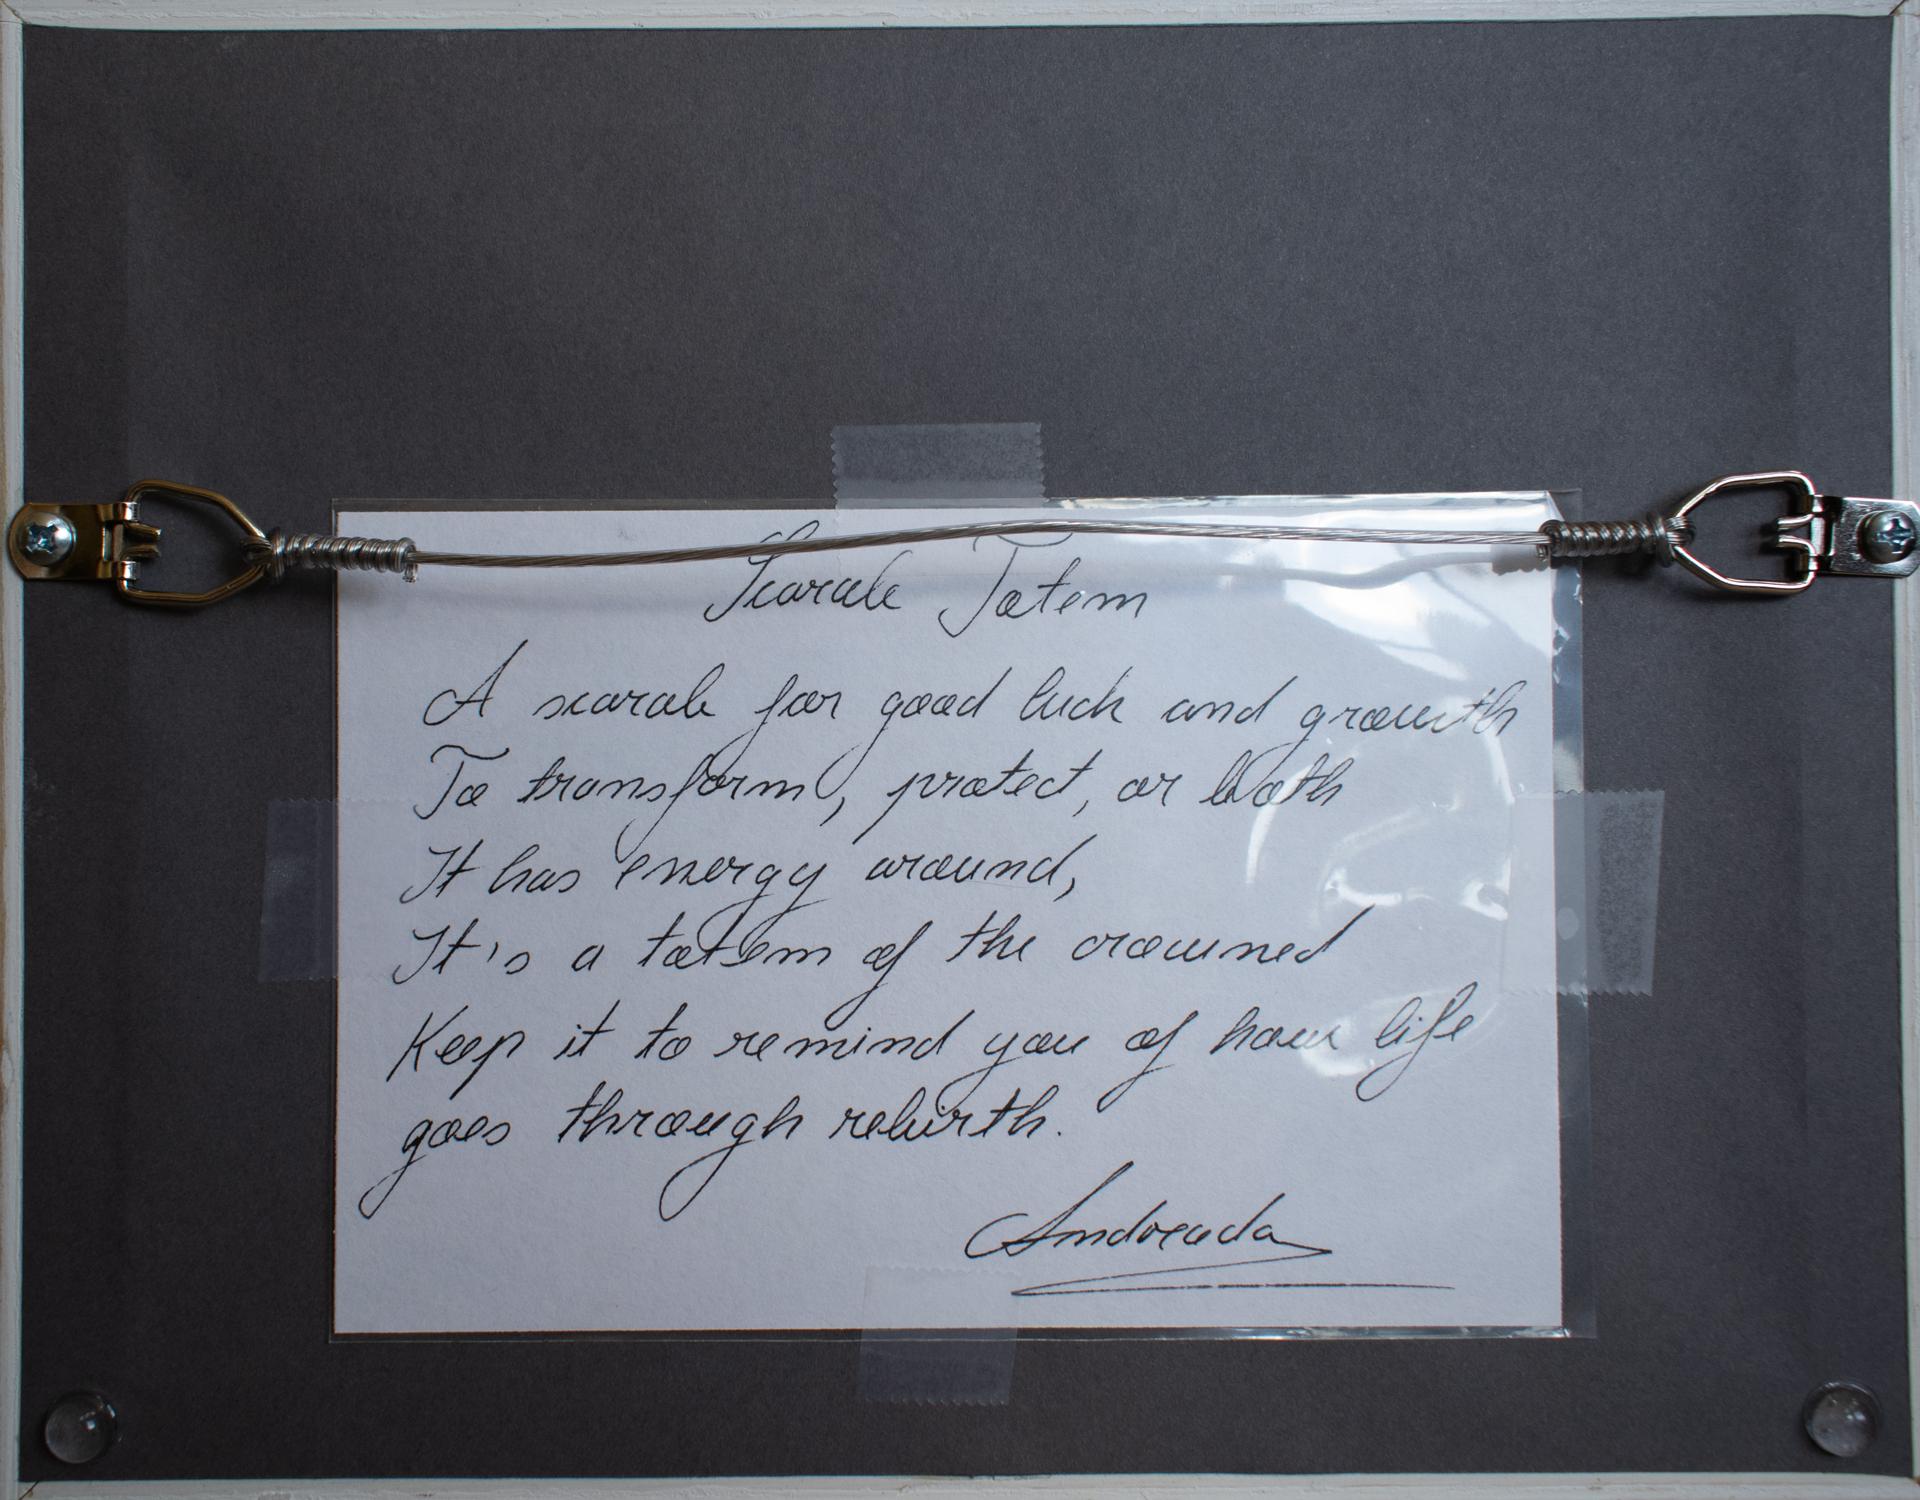 Scarab Totem
A scarab for good luck and growth
To transform, protect, or both
It has energy around,
It's a totem of the crowned
Keep it to remind you of how life
goes through rebirth.